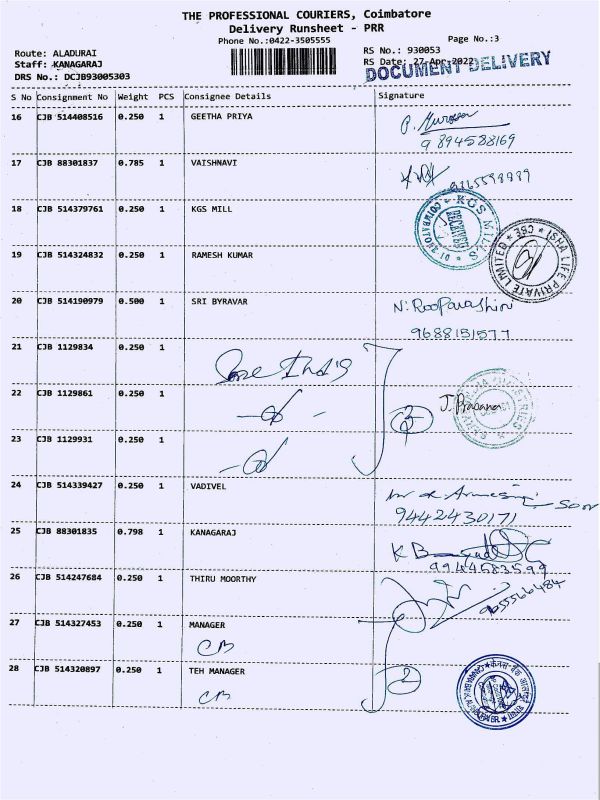 THE PROFESSIONAL COURIERS, Coimbatore
Delivery Runsheet - PRR
Phone No.:0422-3505555
Page No.:3
Route: ALADURAI
RS No.: 930053
Staff: KANAGARAJ
RS Date: 27-Apr-2022
DOCUMENT DELIVERY
DRS No.: DCJB93005303
S No Consignment No Weight PCS Consignee Details Signature
16 CJB 514408516 0.250 1 GEETHA PRIYA
9894588169
17 CJB 88301837 0.785 1 VAISHNAVI
18 CJB 514379761 0.250 1 KGS MILL
KGS MILLS
RECEIVED
COIMBATORE
ISHA LIFE PRIVATE LIMITED ★ CBE ★
19 CJB 514324832 0.250 1 RAMESH KUMAR
20 CJB 514190979 0.500 1 SRI BYRAVAR
9688151577
21 CJB 1129834 0.250 1
22 CJB 1129861 0.250 1
3
J. Prasana
23 CJB 1129931 0.250 1
24 CJB 514339427 0.250 1 VADIVEL
9442430171
25 CJB 88301835 0.798 1 KANAGARAJ
9944583599
26 CJB 514247684 0.250 1 THIRU MOORTHY
27 CJB 514327453 0.250 1 MANAGER
CB
28 CJB 514320897 0.250 1 TEH MANAGER
2
CB